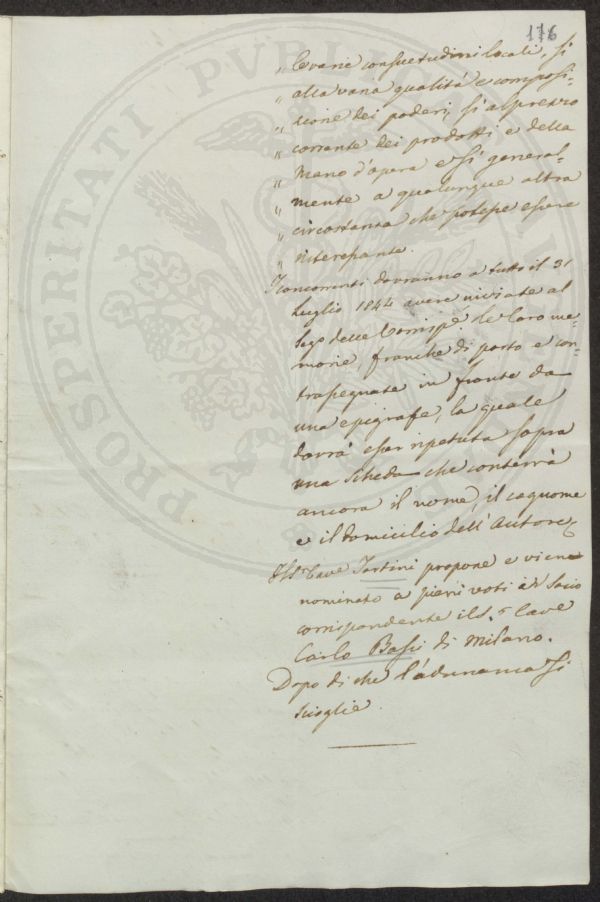 176
„ le varie consuetudini locali, sì
„ alla varia qualità e composi-
„ zione dei poderi, sì al prezzo
„ corrente dei prodotti e della
„ mano d'opera e sì general-
„ mente a qualunque altra
„ circostanza che potesse essere
„ interessante.
I concorrenti dovranno a tutto il 31
Luglio 1844 avere inviate al
Seg.o delle Corrisp.e le loro me-
morie, franche di porto e con-
trassegnate in fronte da
una epigrafe, la quale
dovrà esser ripetuta sopra
una scheda che conterrà
ancora il nome, il cognome
e il domicilio dell'Autore
Il S.r Cave Tartini propone e viene
nominato a pieni voti a Socio
corrispondente il S.r Cave
Carlo Bassi di Milano.
Dopo di che l'adunanza si
scioglie.
PROSPERITATI PUBLICAE